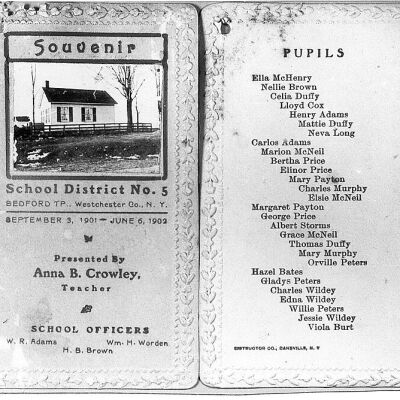 Souvenir
School District No. 5
BEDFORD TP., Westchester Co., N. Y.
SEPTEMBER 3, 1901 — JUNE 6, 1902
Presented By
Anna B. Crowley,
Teacher
SCHOOL OFFICERS
W. R. Adams Wm. H. Worden
H. B. Brown
PUPILS
Ella McHenry
Nellie Brown
Celia Duffy
Lloyd Cox
Henry Adams
Mattie Duffy
Neva Long
Carlos Adams
Marion McNeil
Bertha Price
Elinor Price
Mary Payton
Charles Murphy
Elsie McNeil
Margaret Payton
George Price
Albert Storms
Grace McNeil
Thomas Duffy
Mary Murphy
Orville Peters
Hazel Bates
Gladys Peters
Charles Wildey
Edna Wildey
Willie Peters
Jessie Wildey
Viola Burt
INSTRUCTOR CO., DANSVILLE, N. Y